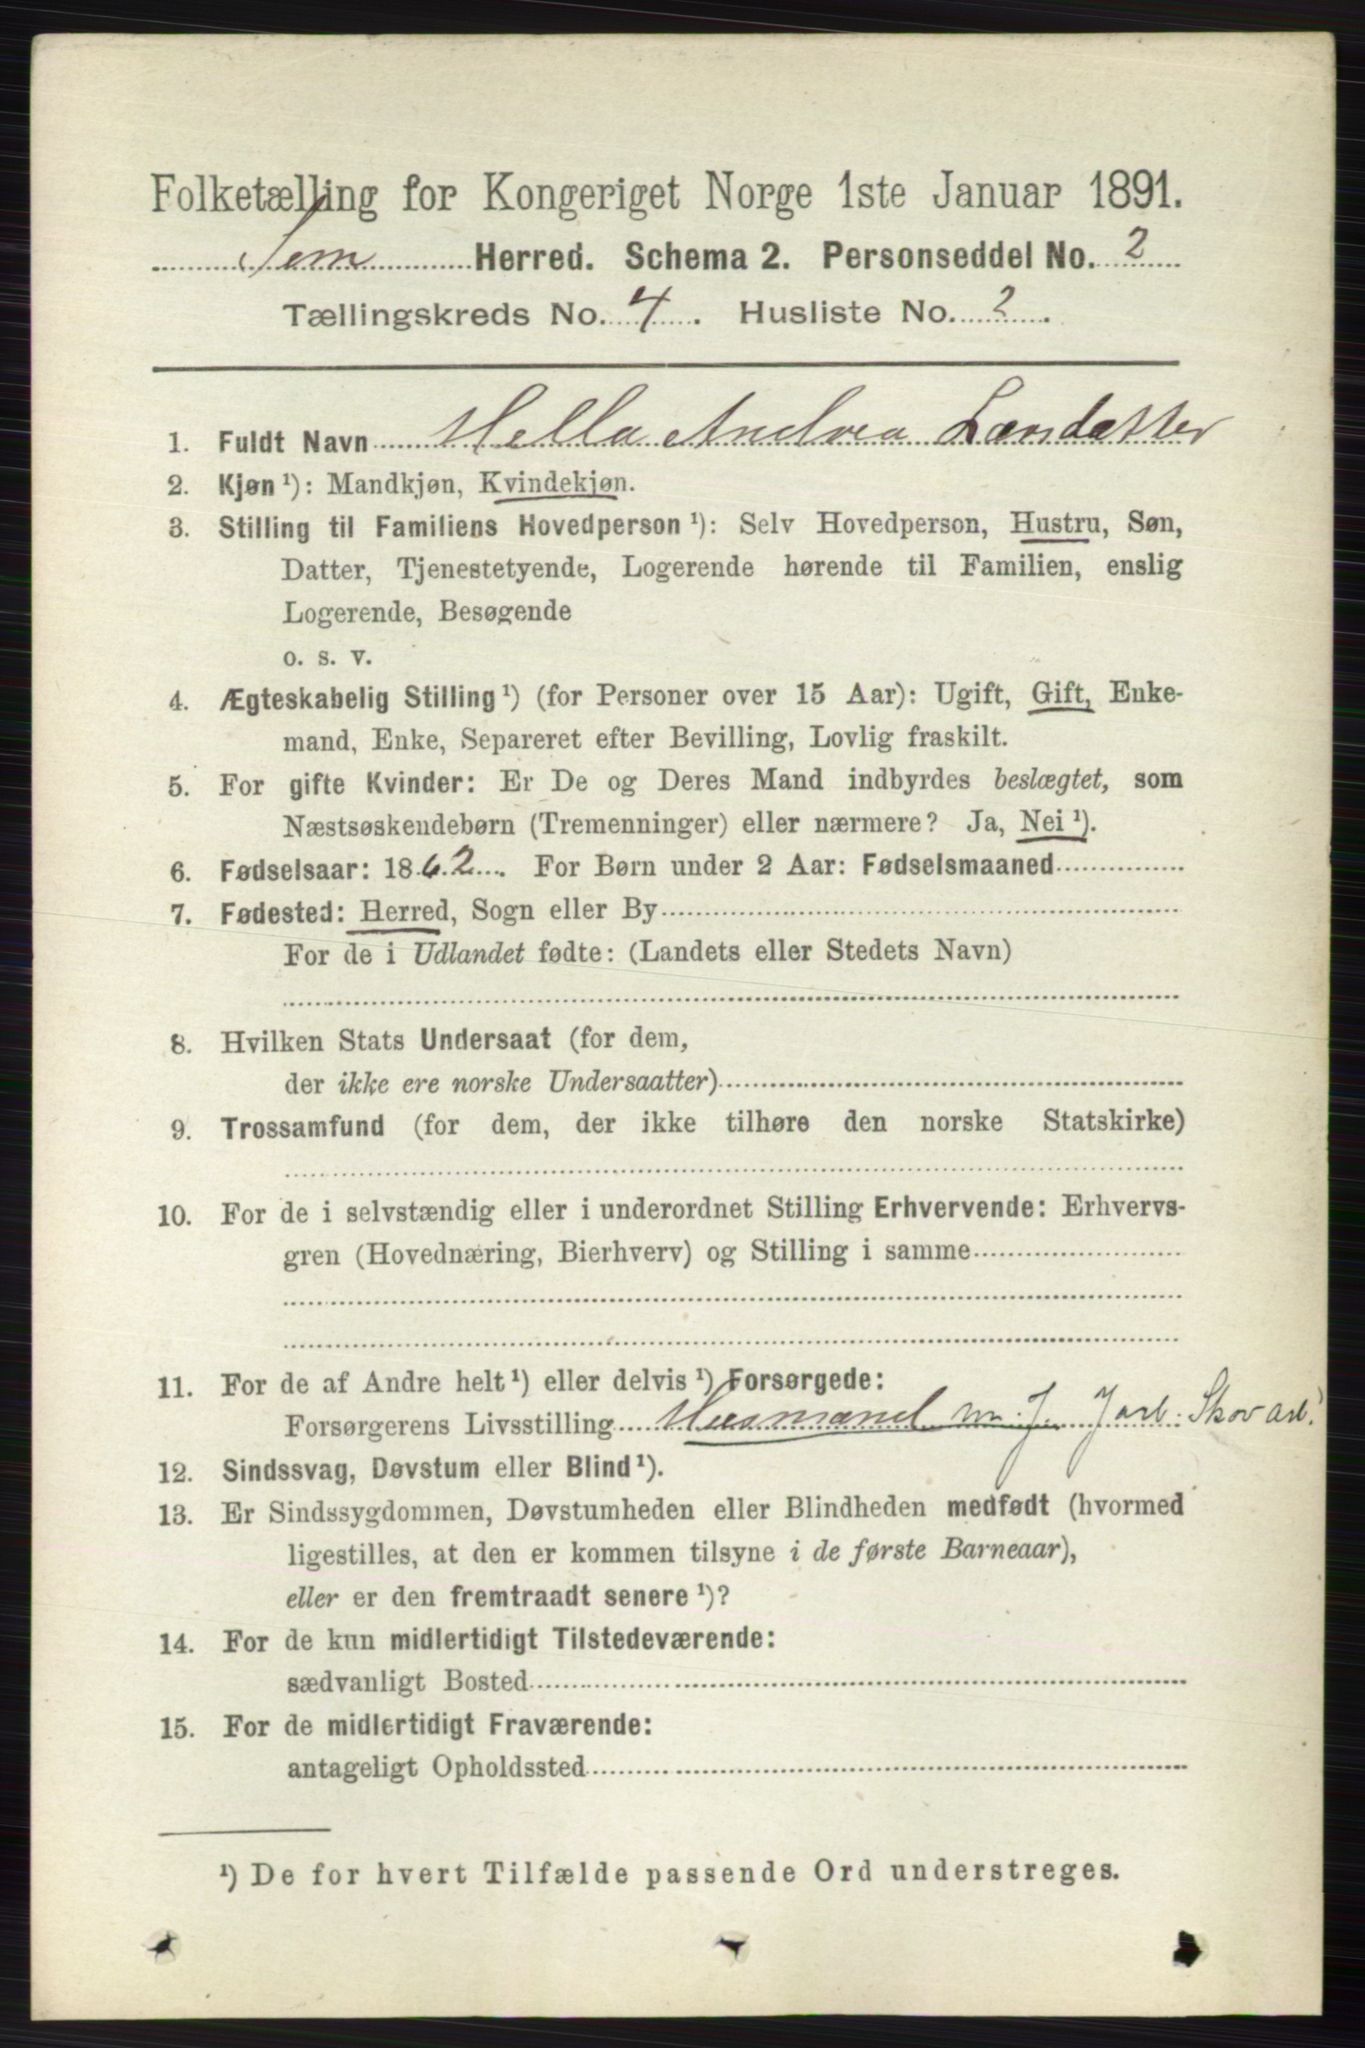 Folketælling for Kongeriget Norge 1ste Januar 1891.
Sem Herred. Schema 2. Personseddel No. 2
Tællingskreds No. 4. Husliste No. 2.
1. Fuldt Navn Hella Andrea Larsdatter
2. Kjøn ¹): Mandkjøn, Kvindekjøn.
3. Stilling til Familiens Hovedperson ¹): Selv Hovedperson, Hustru, Søn,
Datter, Tjenestetyende, Logerende hørende til Familien, enslig
Logerende, Besøgende
o. s. v.
4. Ægteskabelig Stilling ¹) (for Personer over 15 Aar): Ugift, Gift, Enke-
mand, Enke, Separeret efter Bevilling, Lovlig fraskilt.
5. For gifte Kvinder: Er De og Deres Mand indbyrdes beslægtet, som
Næstsøskendebørn (Tremenninger) eller nærmere? Ja, Nei ¹).
6. Fødselsaar: 1862. For Børn under 2 Aar: Fødselsmaaned
7. Fødested: Herred, Sogn eller By
For de i Udlandet fødte: (Landets eller Stedets Navn)
8. Hvilken Stats Undersaat (for dem,
der ikke ere norske Undersaatter)
9. Trossamfund (for dem, der ikke tilhøre den norske Statskirke)
10. For de i selvstændig eller i underordnet Stilling Erhvervende: Erhvervs-
gren (Hovednæring, Bierhverv) og Stilling i samme
11. For de af Andre helt ¹) eller delvis ¹) Forsørgede:
Forsørgerens Livsstilling Husmand m. J. Jarb. Skovarb.
12. Sindssvag, Døvstum eller Blind ¹).
13. Er Sindssygdommen, Døvstumheden eller Blindheden medfødt (hvormed
ligestilles, at den er kommen tilsyne i de første Barneaar),
eller er den fremtraadt senere ¹)?
14. For de kun midlertidigt Tilstedeværende:
sædvanligt Bosted
15. For de midlertidigt Fraværende:
antageligt Opholdssted
¹) De for hvert Tilfælde passende Ord understreges.